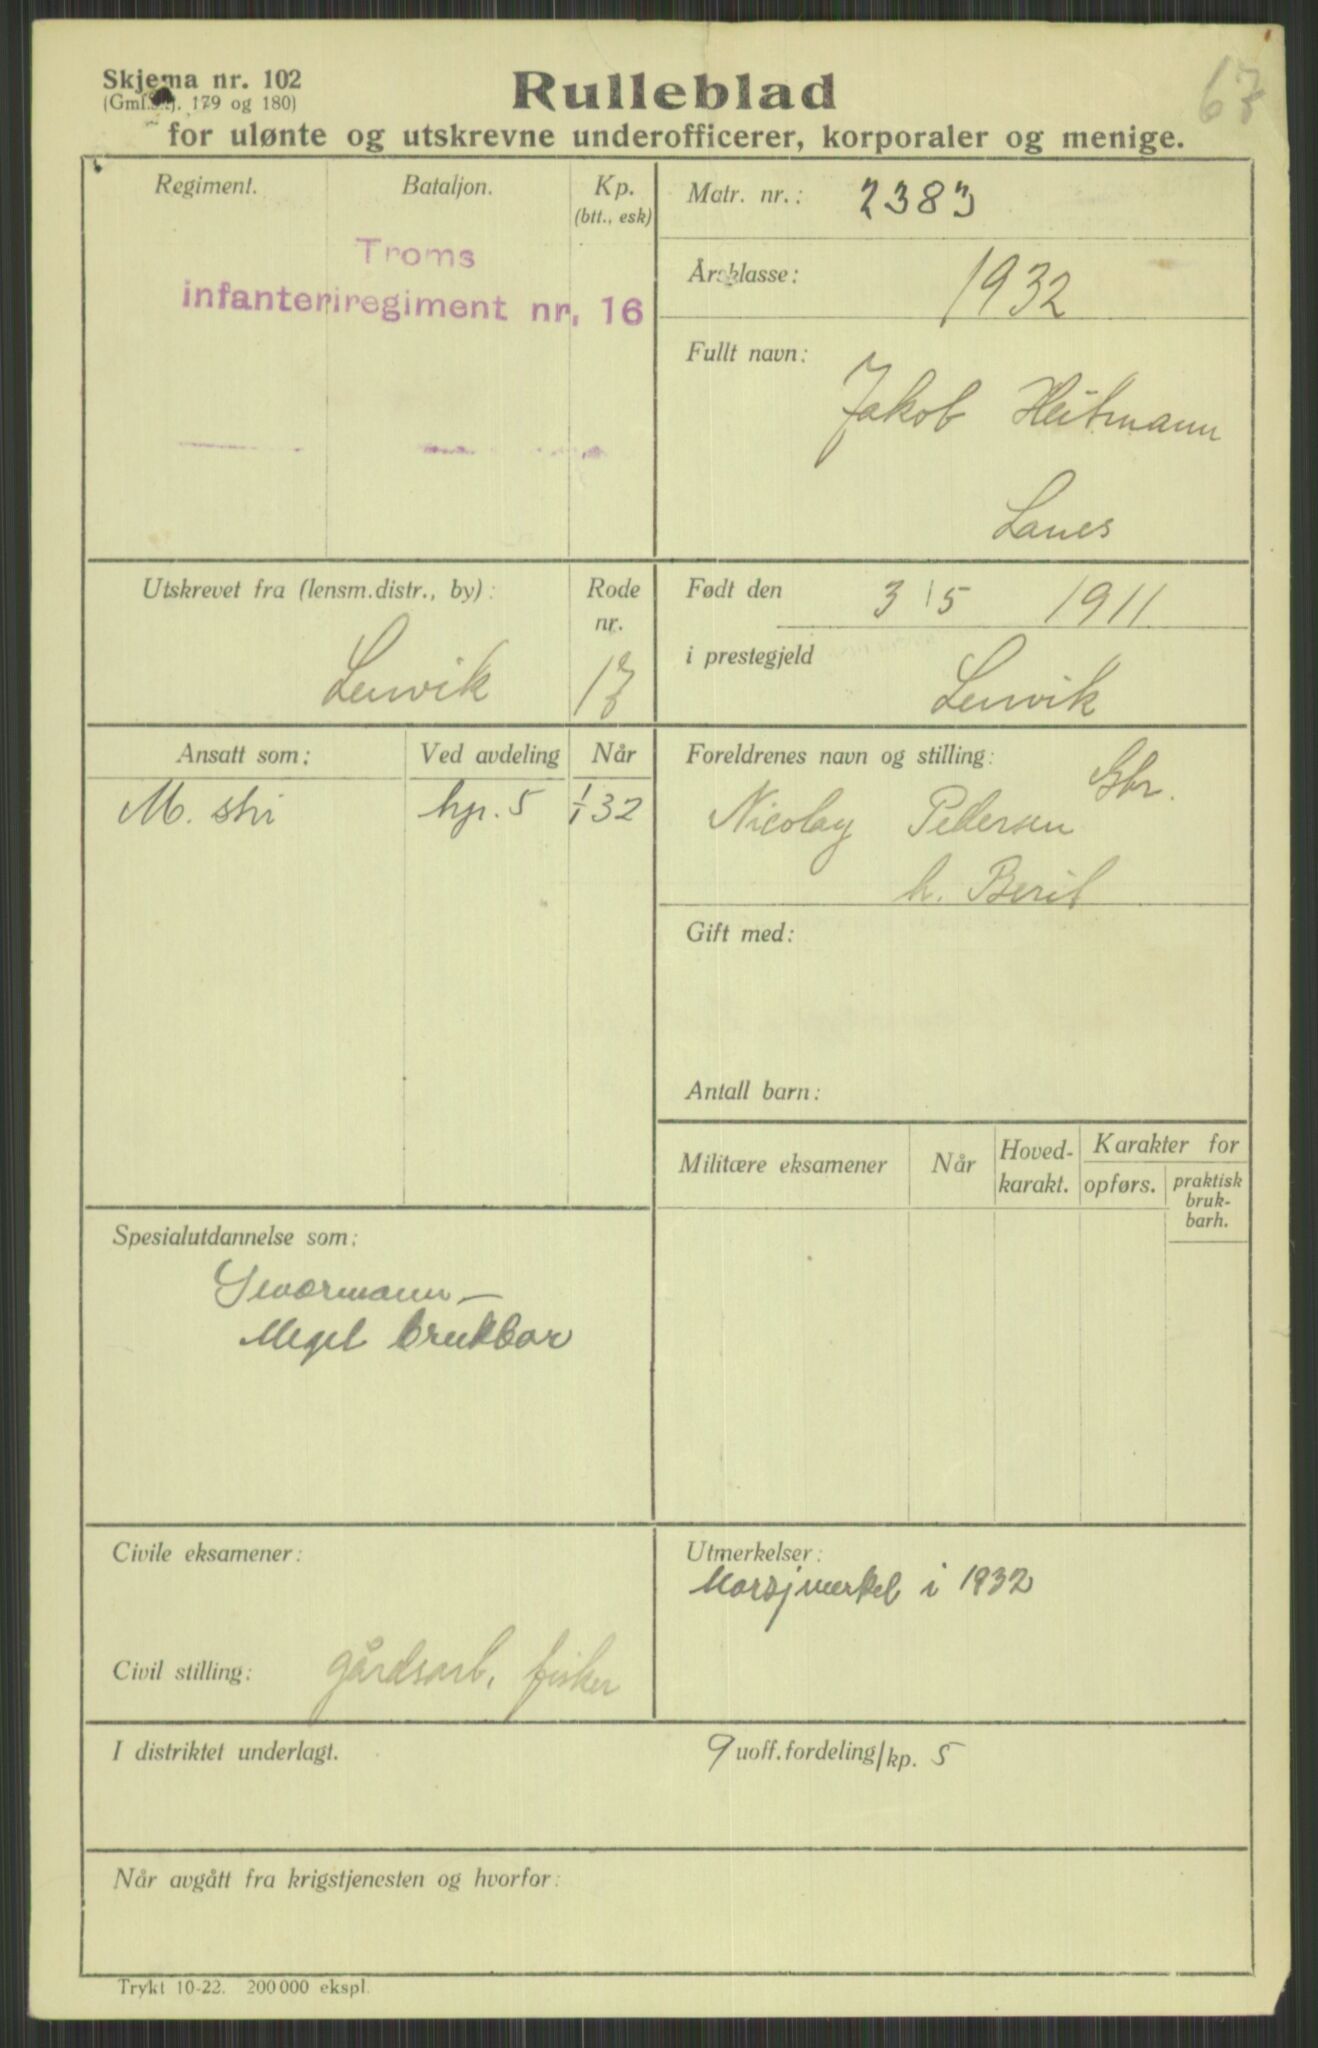 67
Skjema nr. 102
(Gml. skj. 179 og 180)
Rulleblad
for ulønte og utskrevne underofficerer, korporaler og menige.
Regiment.
Bataljon.
Kp.
(btt., esk)
Troms
infanteriregiment nr. 16
Matr. nr.: 2383
Årsklasse: 1932
Fullt navn:
Jakob Heitmann
Lanes
Utskrevet fra (lensm.distr., by):
Lenvik
Rode
nr.
17
Født den 3/5 1911
i prestegjeld
Lenvik
Ansatt som:
Ved avdeling
Når
M. ski
kp. 5
1/1 32
Foreldrenes navn og stilling:
Gbr.
Nicolay Pedersen
h. Berit
Gift med:
Antall barn:
Militære eksamener
Når
Hoved-
karakt.
Karakter for
opførs.
praktisk
bruk-
barh.
Spesialutdannelse som:
Geværmann –
Meget brukbar
Civile eksamener:
Civil stilling: gårdsarb, fisker
Utmerkelser:
Marsjmerket i 1932
I distriktet underlagt.
9 uoff.fordeling/kp. 5
Når avgått fra krigstjenesten og hvorfor:
Trykt 10-22. 200 000 ekspl.